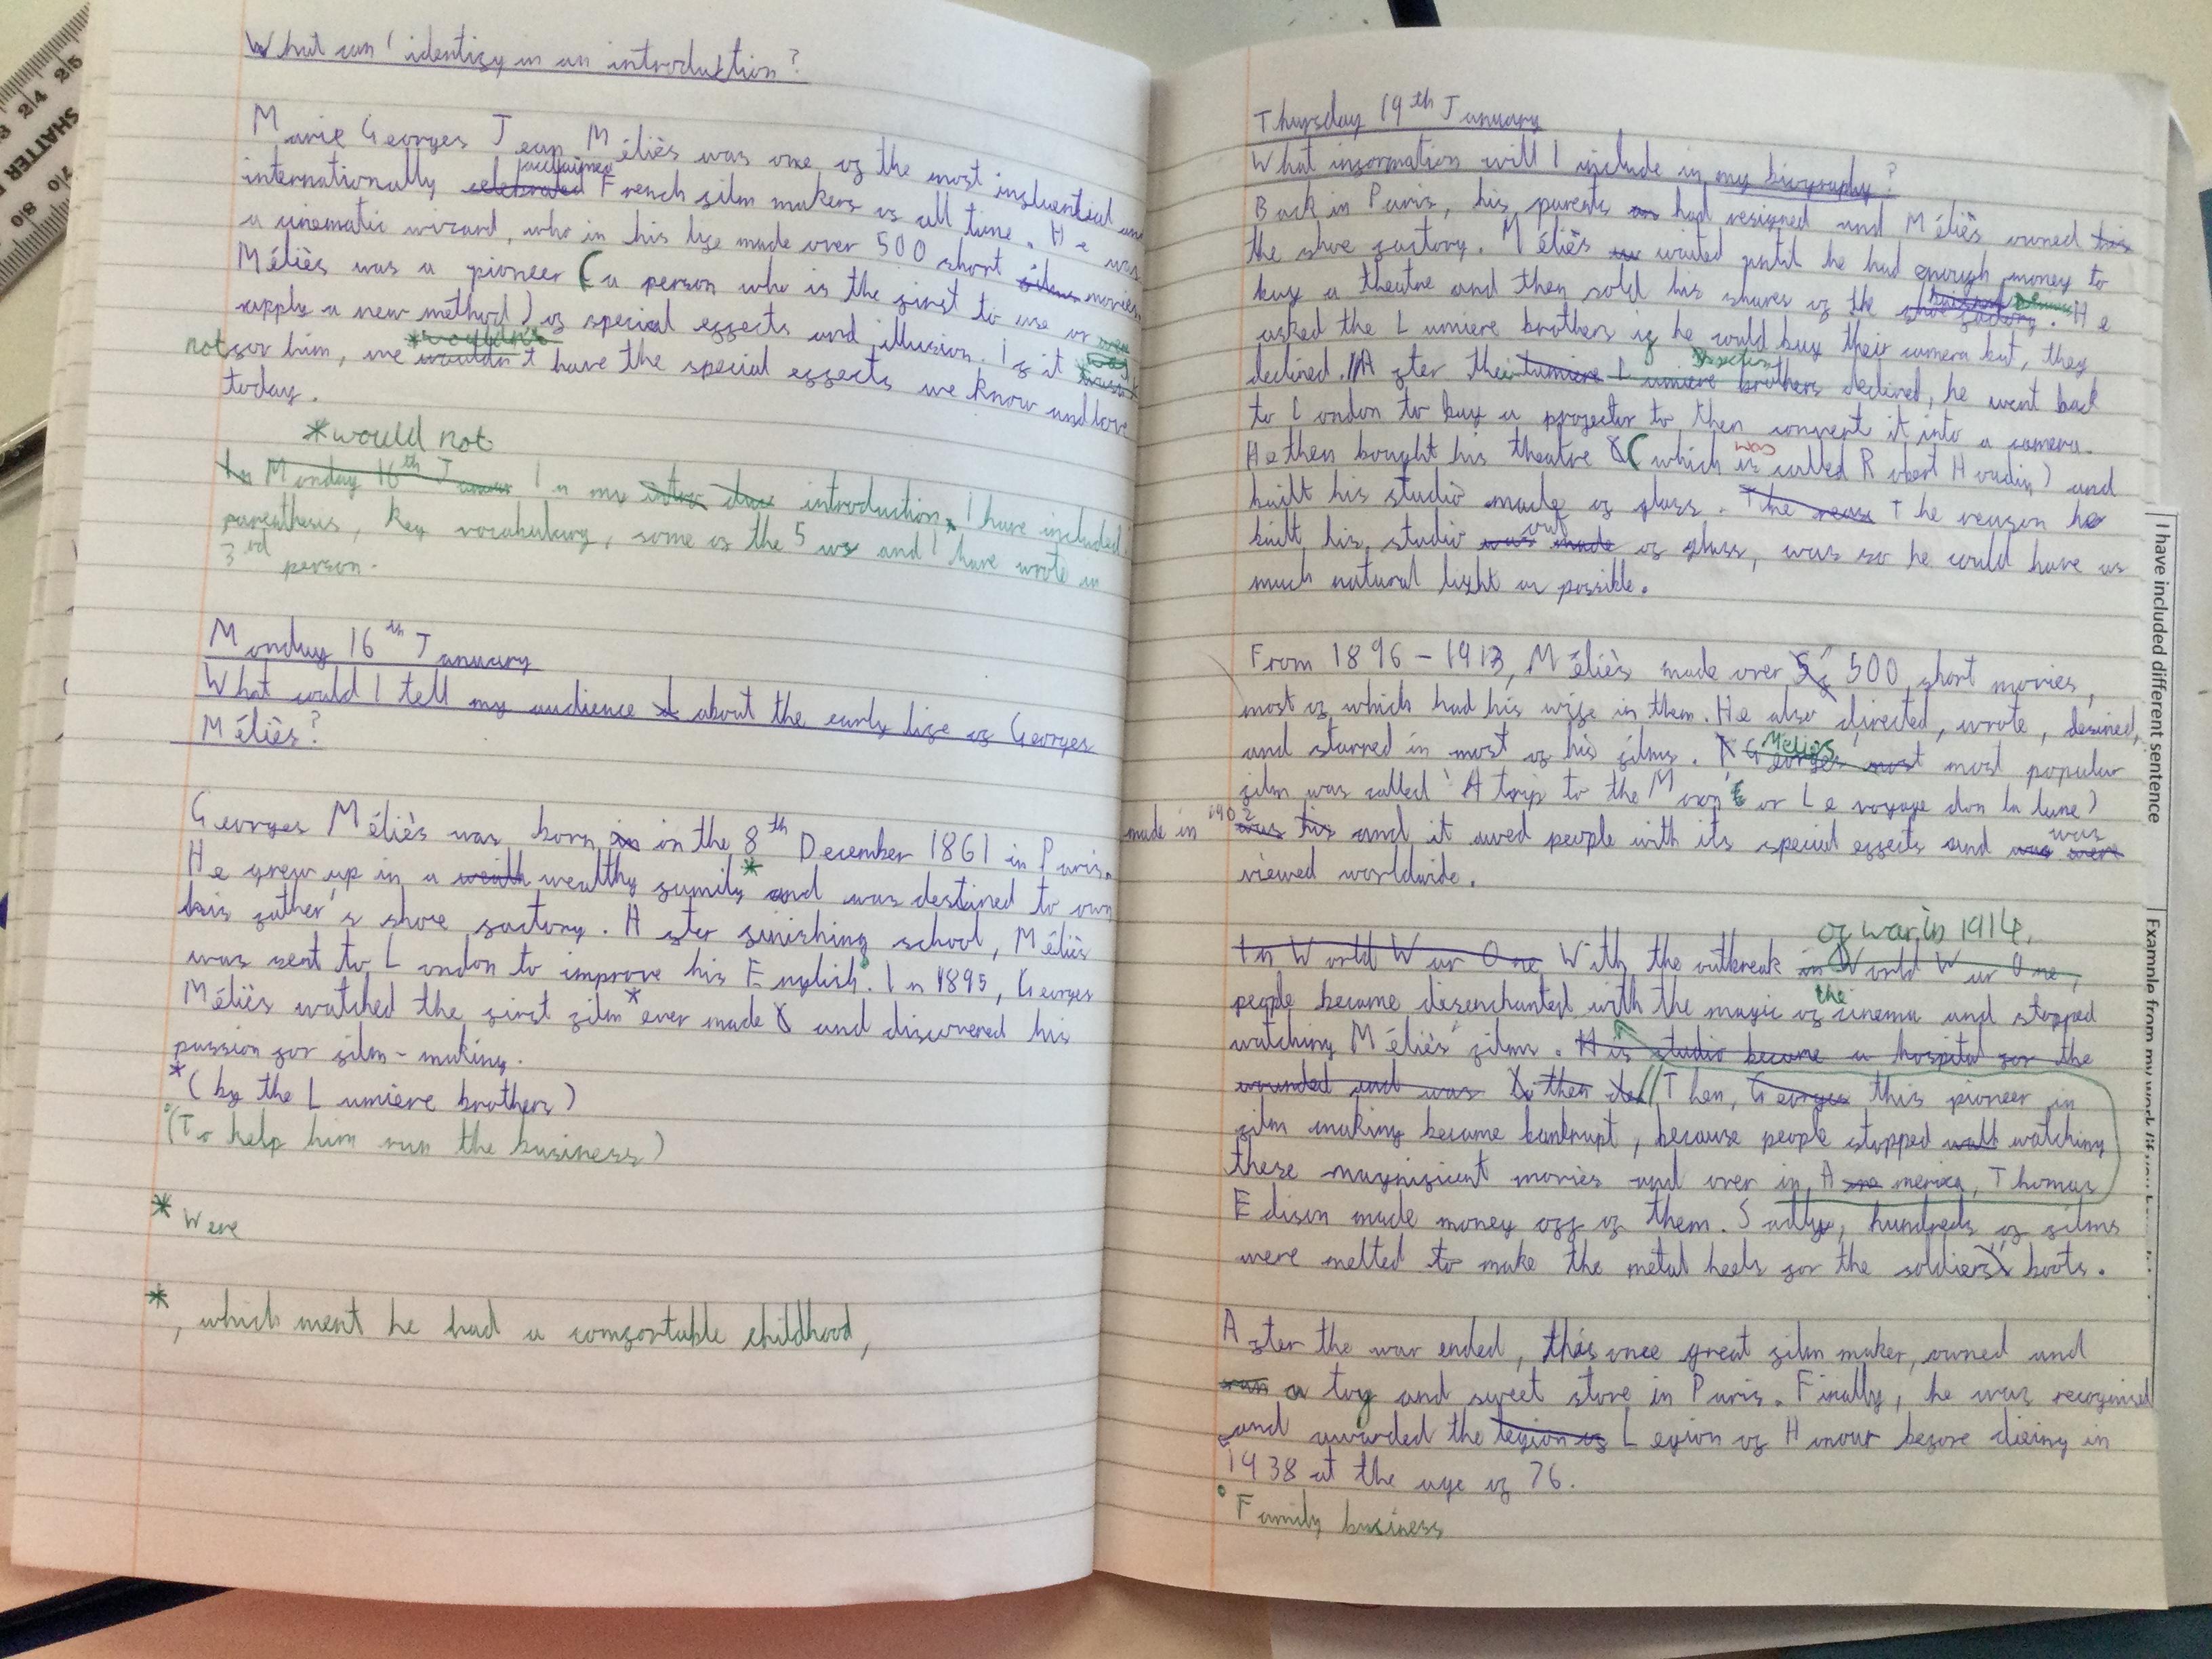 What can I identify in an introduction?
Marie Georges Jean Méliès was one of the most influential and
acclaimed
internationally celebrated French film makers of all time. He was
a cinematic wizard, who in his life made over 500 short films movies.
Méliès was a pioneer (a person who is the first to use or
apply a new method) of special effects and illusion. If it
*wouldn't
not for him, we wouldn't have the special effects we know and love
today.
*would not
In Monday 16th In my introduction, I have included
parenthesis, key vocabulary, some of the 5 ws and I have wrote in
3rd person.
Monday 16th January
What could I tell my audience about the early life of Georges
Méliès?
Georges Méliès was born in on the 8th December 1861 in Paris.
He grew up in a wealth wealthy family * and was destined to own
his father's shoe factory. After finishing school, Méliès
was sent to London to improve his English. In 1895, Georges
Méliès watched the first film * ever made and discovered his
passion for film-making.
*(by the Lumière brothers)
(To help him run the business)
* Were
* , which ment he had a comfortable childhood,
SHATTER
24 25
Thursday 19th January
What information will I include in my biography?
Back in Paris, his parents had resigned and Méliès owned his
the shoe factory. Méliès waited until he had enough money to
buy a theatre and then sold his shares of the shoe factory. He
asked the Lumiere brothers if he could buy their camera but, they
declined. // After the Lumiere brothers declined, he went back
to London to buy a projector to then convert it into a camera.
was
He then bought his theatre (which is called Robert Houdin) and
built his studio made of glass. The reason he
out
built his studio was made of glass, was so he could have as
much natural light as possible.
From 1896-1913, Méliès made over 500 short movies,
most of which had his wife in them. He also directed, wrote, desined,
Melies
and starred in most of his films. Georges most most popular
film was called 'A trip to the Moon' (or Le voyage don la lune)
made in 1902 was his and it awed people with its special effects and was were
was
viewed worldwide.
of war in 1914,
In World War One With the outbreak in World War One,
the
people became disenchanted with the magic of cinema and stopped
watching Méliès' films. His studio became a hospital for the
wounded and was then // Then, Georges this pioneer in
film making became bankrupt, because people stopped watching
these magnificent movies and over in America, Thomas
Edison made money off of them. Sadly, hundreds of films
were melted to make the metal heels for the soldiers' boots.
After the war ended, this once great film maker, owned and
ran a toy and sweet store in Paris. Finally, he was recognised
and awarded the legion of Legion of Honour before dieing in
1938 at the age of 76.
Family business
I have included different sentence
Example from my work